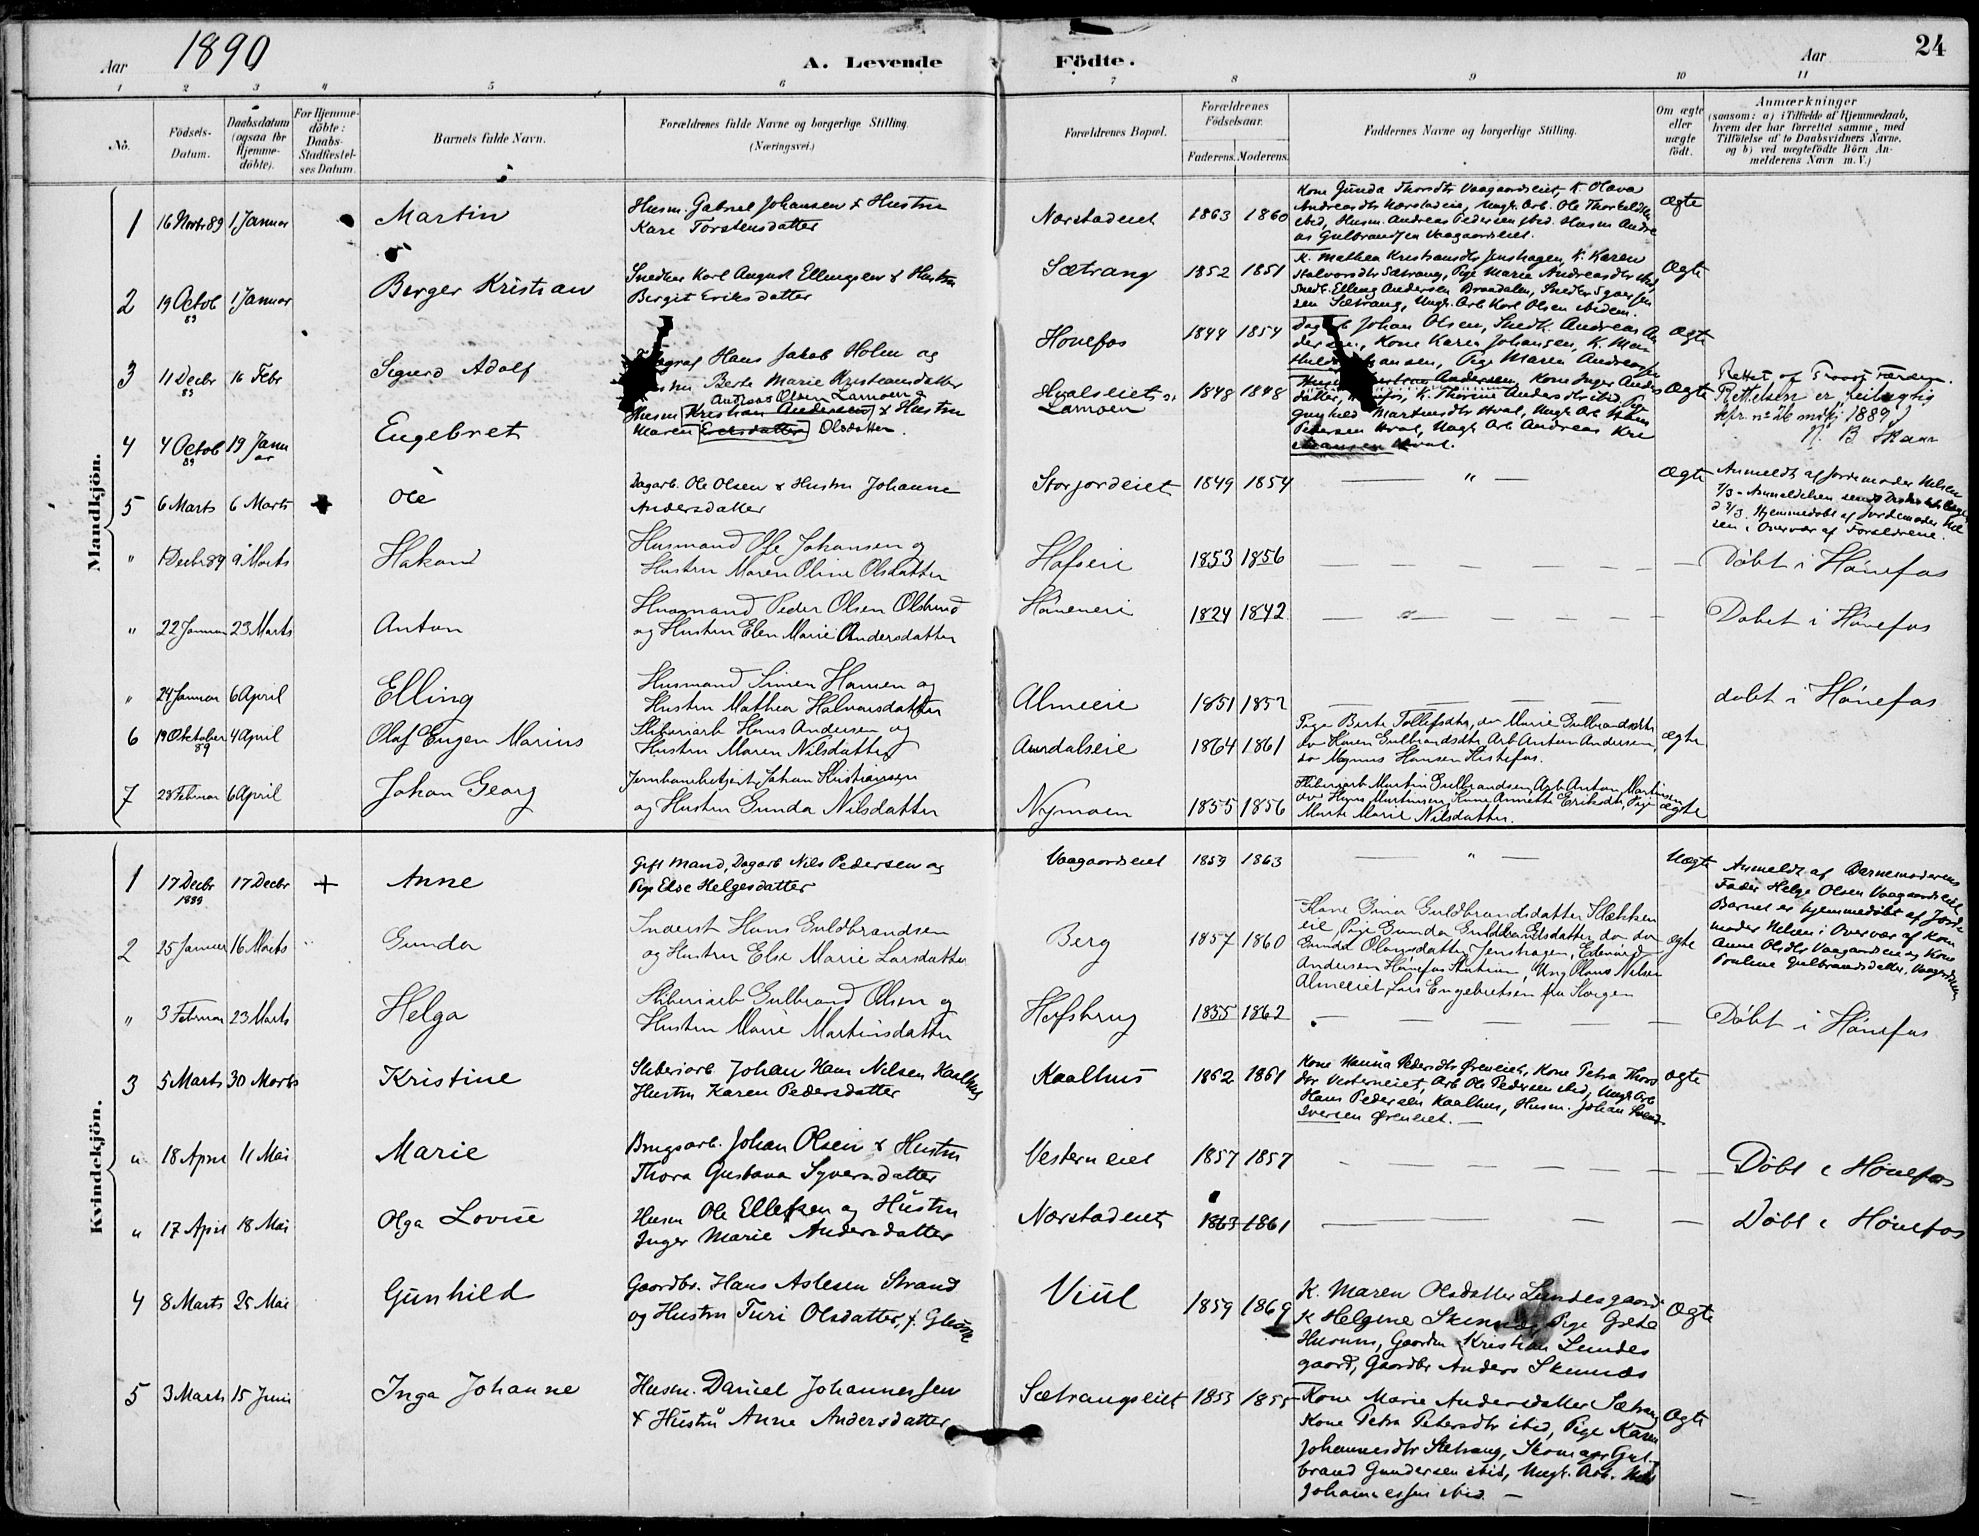 Aar 1890 A. Levende Födte. Aar 24
1 2 3 4 5 6 7 8 9 10 11
No. Födsels-Datum. Daabsdatum (ogsaa for Hjemme-döbte). For Hjemme-döbte: Daabs-Stadfæstel-ses Datum. Barnets fulde Navn. Forældrenes fulde Navne og borgerlige Stilling. (Næringsvei.) Forældrenes Bopæl. Forældrenes Födselsaar. Faderens. Moderens. Faddernes Navne og borgerlige Stilling. Om ægte eller uægte födt. Anmærkninger (saasom: a) i Tilfælde af Hjemmedaab, hvem der har forrettet samme, med Tilföielse af to Daabsvidners Navne, og b) ved uægtefödte Börn An-melderens Navn m. V.)
Mandkjön.
1 16 Novbr 89 1 Januar Martin Husm. Gabriel Johansen & Hustru
Kari Torstensdatter Nærstadeiet 1863 1860 Kone Gunda Thorsdtr Vaagaardseiet, K. Olava
Andreasdtr Nærstadeie, Ungk. Arb. Ole
ibid, Husm. Andreas Pedersen ibid. Husm Andre
as Gulbrandsen Vaagaardseiet. Ægte
2 19 Octob 89 1 Januar Berger Kristian Snedker Karl August Ellingsen & Hustru
Bergit Eriksdatter Sætrang 1852 1851 K. Mathea Kristiansdtr Jenshagen, K. Karen
Halvorsdtr Sætrang, Pige Marie Andreasdtr ibid,
Snedk. Elling Andersen
Sætrang, Ungk. Arb Karl Olsen ibidem. Ægte
3 11 Decbr 89 16 Febr Sigurd Adolf Hans Jakob Holm og
Berte Marie Kristiansdatter Hønefos 1849 1854 Johan Olsen, Snedk. Andreas An
dersen, Kone Karen Johansen, K.
Pige Maren Andreasen Ægte
4 4 Octob 89 19 Januar Engebret Andreas Olsen Lamoen
Husm Kristian Andersen & Hustru
Maren Eriksdatter Olsdatter. Hvalseiet
Lamoen 1848 1848 Andersen, Kone Inger Anders
datter, K. Thorine Andersdtr ibid, Pige
Gunhild Martinsdtr Hval, Ungk Arb
Petersen Hval, Ungk Arb Andreas Kri
stiansen Hval. Ægte Rettet af
Rettelsen er
1889
N. B. Skaar
5 6 Marts 6 Marts + Ole Dagarb. Ole Olsen & Hustru Johanne
Andersdatter Storjordeiet 1849 1854 — " — Ægte Anmeldt af Jordemoder Nelsen
7/3 - Anmeldelsen
9/3. Hjemmedøbt af Jordemoder Nel
sen i Overvær af Forældrene.
" 1 Decbr 89 9 Marts Hakon Husmand Johansen og
Hustru Maren Oline Olsdatter Hofseie 1853 1856 — — — Døbt i Hønefos
" 22 Januar 23 Marts Anton Husmand Peder Olsen
og Hustru Elen Marie Andersdatter Høneneie 1824 1842 — — — Døbt i Hønefos
" 24 Januar 6 April Elling Husmand Simen Hansen og
Hustru Mathea Halvorsdatter Almeeie 1851 1852 — — — døbt i Hønefos
6 19 Oktober 89 4 April Olaf Eugen Marius Sliberiarb Hans Andersen og
Hustru Maren Nilsdatter Aurdalseie 1864 1861 Pige Berte Tollefsdtr, do Marie Gulbrandsdtr
do Karen Gulbrandsdtr Arb Anton Andersen,
do Magnus Hansen Histefos. ægte
7 28 Februar 6 April Johan Georg Jernbanebetjent Johan Kristiansen
og Hustru Gunda Nilsdatter Nymoen 1855 1856 Sliberiarb Martin Gulbrandsen, Arb Anton Martinsen,
do Hans Martinsen, Kone Annette Eriksdtr, Pige
Marte Marie Nilsdatter. ægte
Kvindekjön.
1 17 Decbr 1889 17 Decbr + Anne Gift Mand, Dagarb Nils Pedersen og
Pige Else Helgesdatter Vaagaardseiet 1859 1863 — " — Uægte Anmeldt af Barnemoderens
Fader Helge Olsen Vaagaardseiet
Barnet er hjemmedøbt af Jorde
moder Nelsen i Overvær af Kone
Anne Olsdtr Vaagaardseie og Kone
Pauline Gulbrandsdatter, Vaagardseie
2 25 Januar 16 Marts Gunda Inderst Hans Guldbrandsen
og Hustru Else Marie Larsdatter Berg 1857 1860 Kone Gina Guldbrandsdatter
eie Pige Gunda Guldbrandsdatter do do
Gunda Olausdatter Jenshagen, Edvard
Andersen Hønefos Station, Ung Olaus Nilsen
Almeeiet, Lars Engebretsen fra ægte
" 3 Februar 23 Marts Helga Sliberiarb Gulbrand Olsen og
Hustru Marie Martinsdatter Hofsbrug 1855 1862 — — — Døbt i Hønefos
3 5 Marts 30 Marts Kristine Sliberiarb Johan Hans Nilsen Kaalhus
Hustru Karen Pedersdatter Kaalhus 1862 1861 Kone Hanna Pedersdtr Øreneiet, Kone Petra Thors
dtr Vesterneiet, Arb Ole Pedersen ibid, Ungk Arb
Hans Pedersen Kaalhus, Husm. Johan
Iversen Øreneiet. — ægte
" 18 April 11 Mai Marie Brugsarb. Johan Olsen & Hustru
Thora Gustava Syversdatter Vesterneiet 1857 1857 — — — Døbt i Hønefos
" 17 April 18 Mai Olga Lovise Husm Ole Ellefsen og Hustru
Inger Marie Andersdatter Nærstadeiet 1863 1861 — — — Døbt i Hønefos
4 8 Marts 25 Mai Gunhild Gaardbr. Hans Aslesen Strand
og Hustru Turi Olsdatter, f. Viul 1859 1869 K. Maren Olsdatter Lundesgaard
K Helgine Skinnes, Pige Grethe
Husum, Gaardm Kristian Lundes
gaard, Gaardbr Anders Skinnes Ægte
5 3 Marts 15 Juni Inga Johanne Husm. Daniel Johannessen
& Hustru Anne Andersdatter Sætrangseiet 1853 1855 Kone Marie Andersdatter Sætrang
Kone Petra Petersdtr ibid, Pige Karen
Johannesdtr Sætrang, Skomager Gul-
brand Gundersen ibid, Ungk. Arb. Nils
Johannessen ibid. — Ægte —